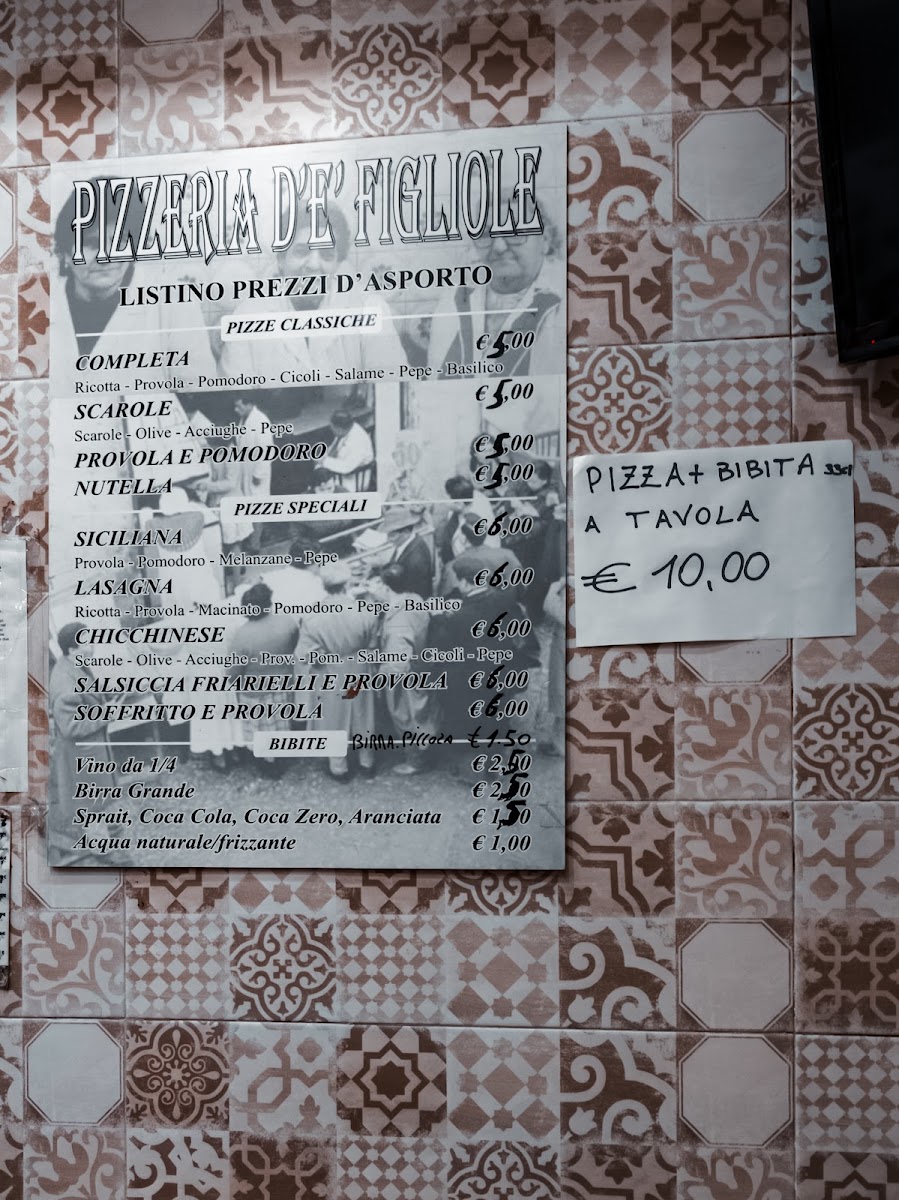 PIZZERIA D'E' FIGLIOLE
LISTINO PREZZI D'ASPORTO
PIZZE CLASSICHE
COMPLETA € 5,00
Ricotta - Provola - Pomodoro - Cicoli - Salame - Pepe - Basilico
SCAROLE € 5,00
Scarole - Olive - Acciughe - Pepe
PROVOLA E POMODORO € 5,00
NUTELLA € 5,00
PIZZE SPECIALI
SICILIANA € 6,00
Provola - Pomodoro - Melanzane - Pepe
LASAGNA € 6,00
Ricotta - Provola - Macinato - Pomodoro - Pepe - Basilico
CHICCHINESE € 6,00
Scarole - Olive - Acciughe - Prov. - Pom. - Salame - Cicoli - Pepe
SALSICCIA FRIARIELLI E PROVOLA € 6,00
SOFFRITTO E PROVOLA € 6,00
BIBITE BIRRA. PICCOLA € 1.50
Vino da 1/4 € 2,50
Birra Grande € 2,50
Sprait, Coca Cola, Coca Zero, Aranciata € 1,50
Acqua naturale/frizzante € 1,00
PIZZA + BIBITA 33cl
A TAVOLA
€ 10,00